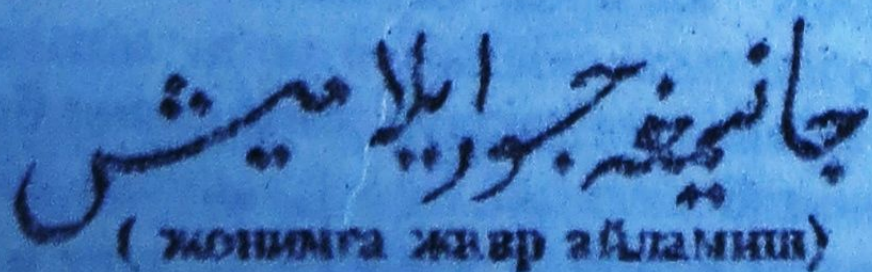 جانیمغه جور ایلامیش
( жонимга жавр айламиш)